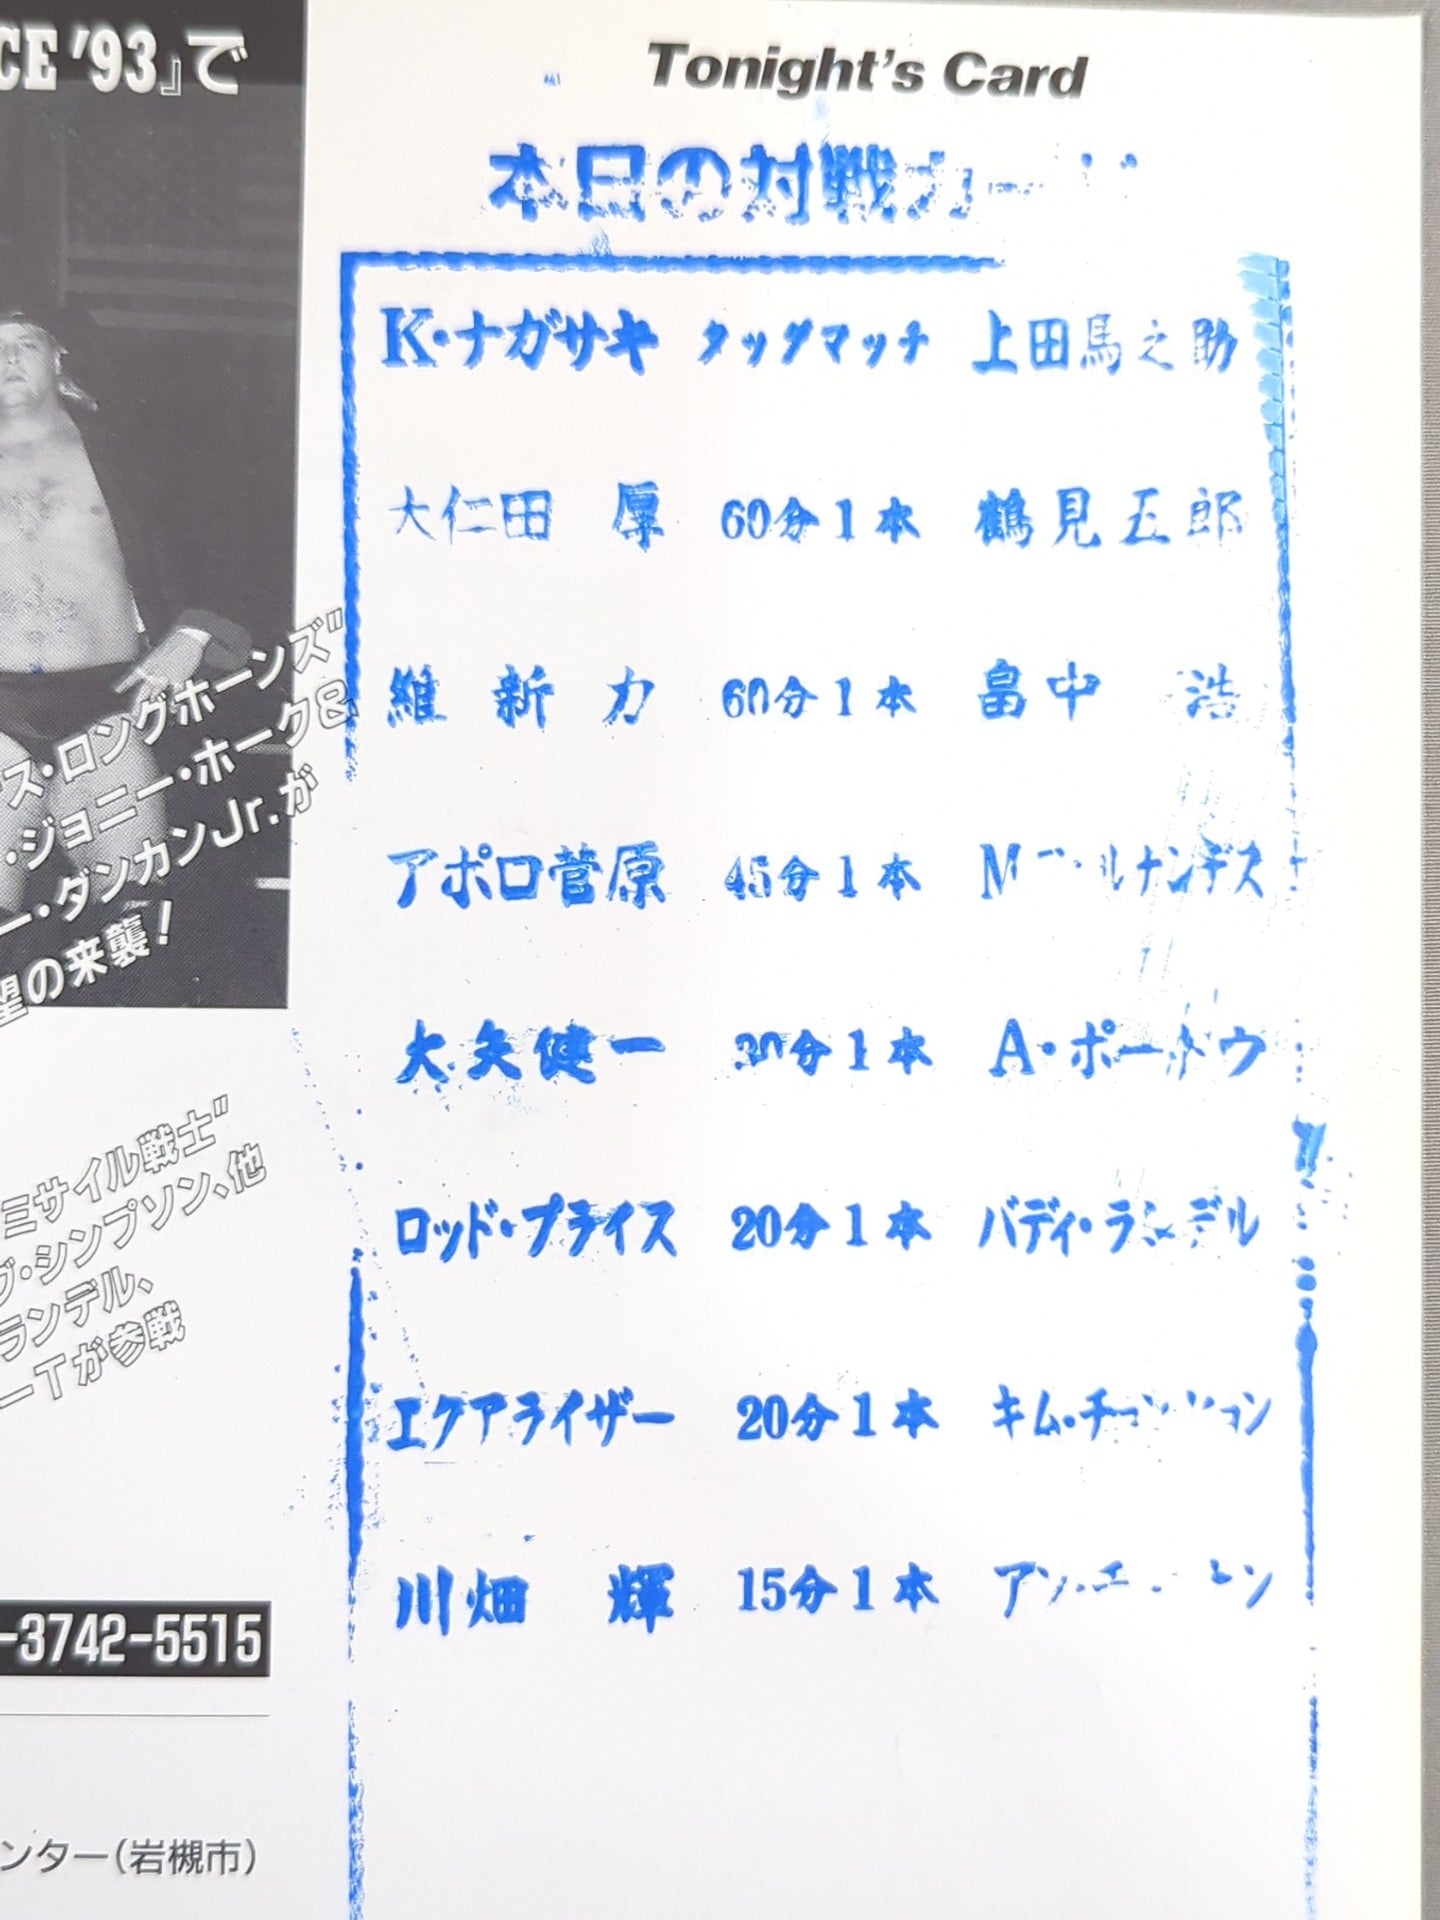 CE '93』で
ス・ロングホーンズ"
・ジョニー・ホーク&
ー・ダンカンJr.が
望の来襲!
ミサイル戦士"
ブ・シンプソン、他
ランデル、
ーTが参戦
-3742-5515
ンター(岩槻市)
Tonight's Card
本日の対戦カード
K・ナガサキ タッグマッチ 上田馬之助
大仁田 厚 60分1本 鶴見五郎
維新力 60分1本 畠中 浩
アポロ菅原 45分1本 M ルナンデス
大矢健一 30分1本 A・ポー ウ
ロッド・プライス 20分1本 バディ・ランデル
エクアライザー 20分1本 キム・チ ョン
川畑 輝 15分1本